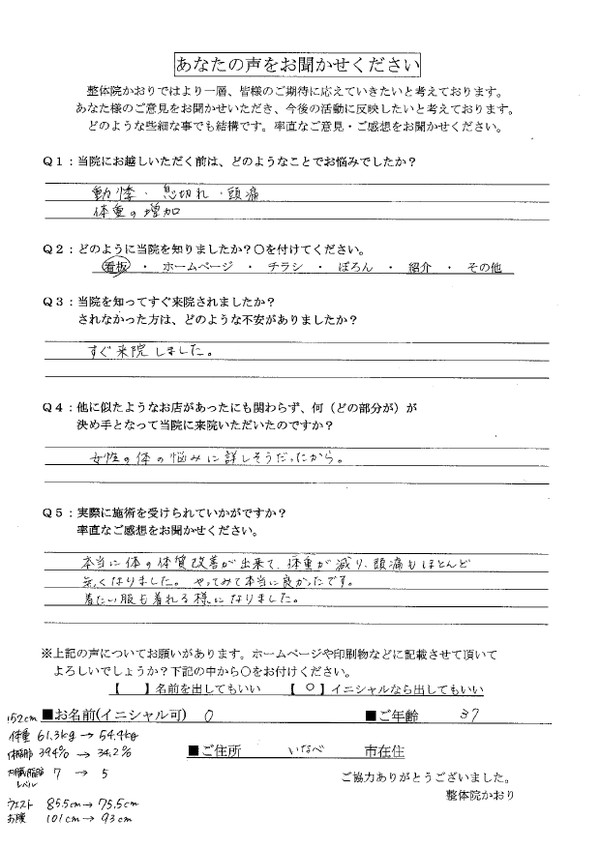 あなたの声をお聞かせください
整体院かおりではより一層、皆様のご期待に応えていきたいと考えております。
あなた様のご意見をお聞かせいただき、今後の活動に反映したいと考えております。
どのような些細な事でも結構です。率直なご意見・ご感想をお聞かせください。
Q1：当院にお越しいただく前は、どのようなことでお悩みでしたか？
動悸・息切れ・頭痛
体重の増加
Q2：どのように当院を知りましたか？〇を付けてください。
看板 ・ ホームページ ・ チラシ ・ ぽろん ・ 紹介 ・ その他
Q3：当院を知ってすぐ来院されましたか？
されなかった方は、どのような不安がありましたか？
すぐ来院しました。
Q4：他に似たようなお店があったにも関わらず、何（どの部分が）が
決め手となって当院に来院いただいたのですか？
女性の体の悩みに詳しそうだったから。
Q5：実際に施術を受けられていかがですか？
率直なご感想をお聞かせください。
本当に体の体質改善が出来て、体重が減り、頭痛もほとんど
無くなりました。やってみて本当に良かったです。
着たい服も着れる様になりました。
※上記の声についてお願いがあります。ホームページや印刷物などに記載させて頂いて
よろしいでしょうか？下記の中から〇をお付けください。
【 】名前を出してもいい 【 〇 】イニシャルなら出してもいい
■お名前(イニシャル可) O ■ご年齢 37
■ご住所 いなべ 市在住
152cm
体重 61.3kg → 54.4kg
体脂肪 39.4% → 34.2%
内臓脂肪レベル 7 → 5
ウエスト 85.5cm → 75.5cm
お腹 101cm → 93cm
ご協力ありがとうございました。
整体院かおり